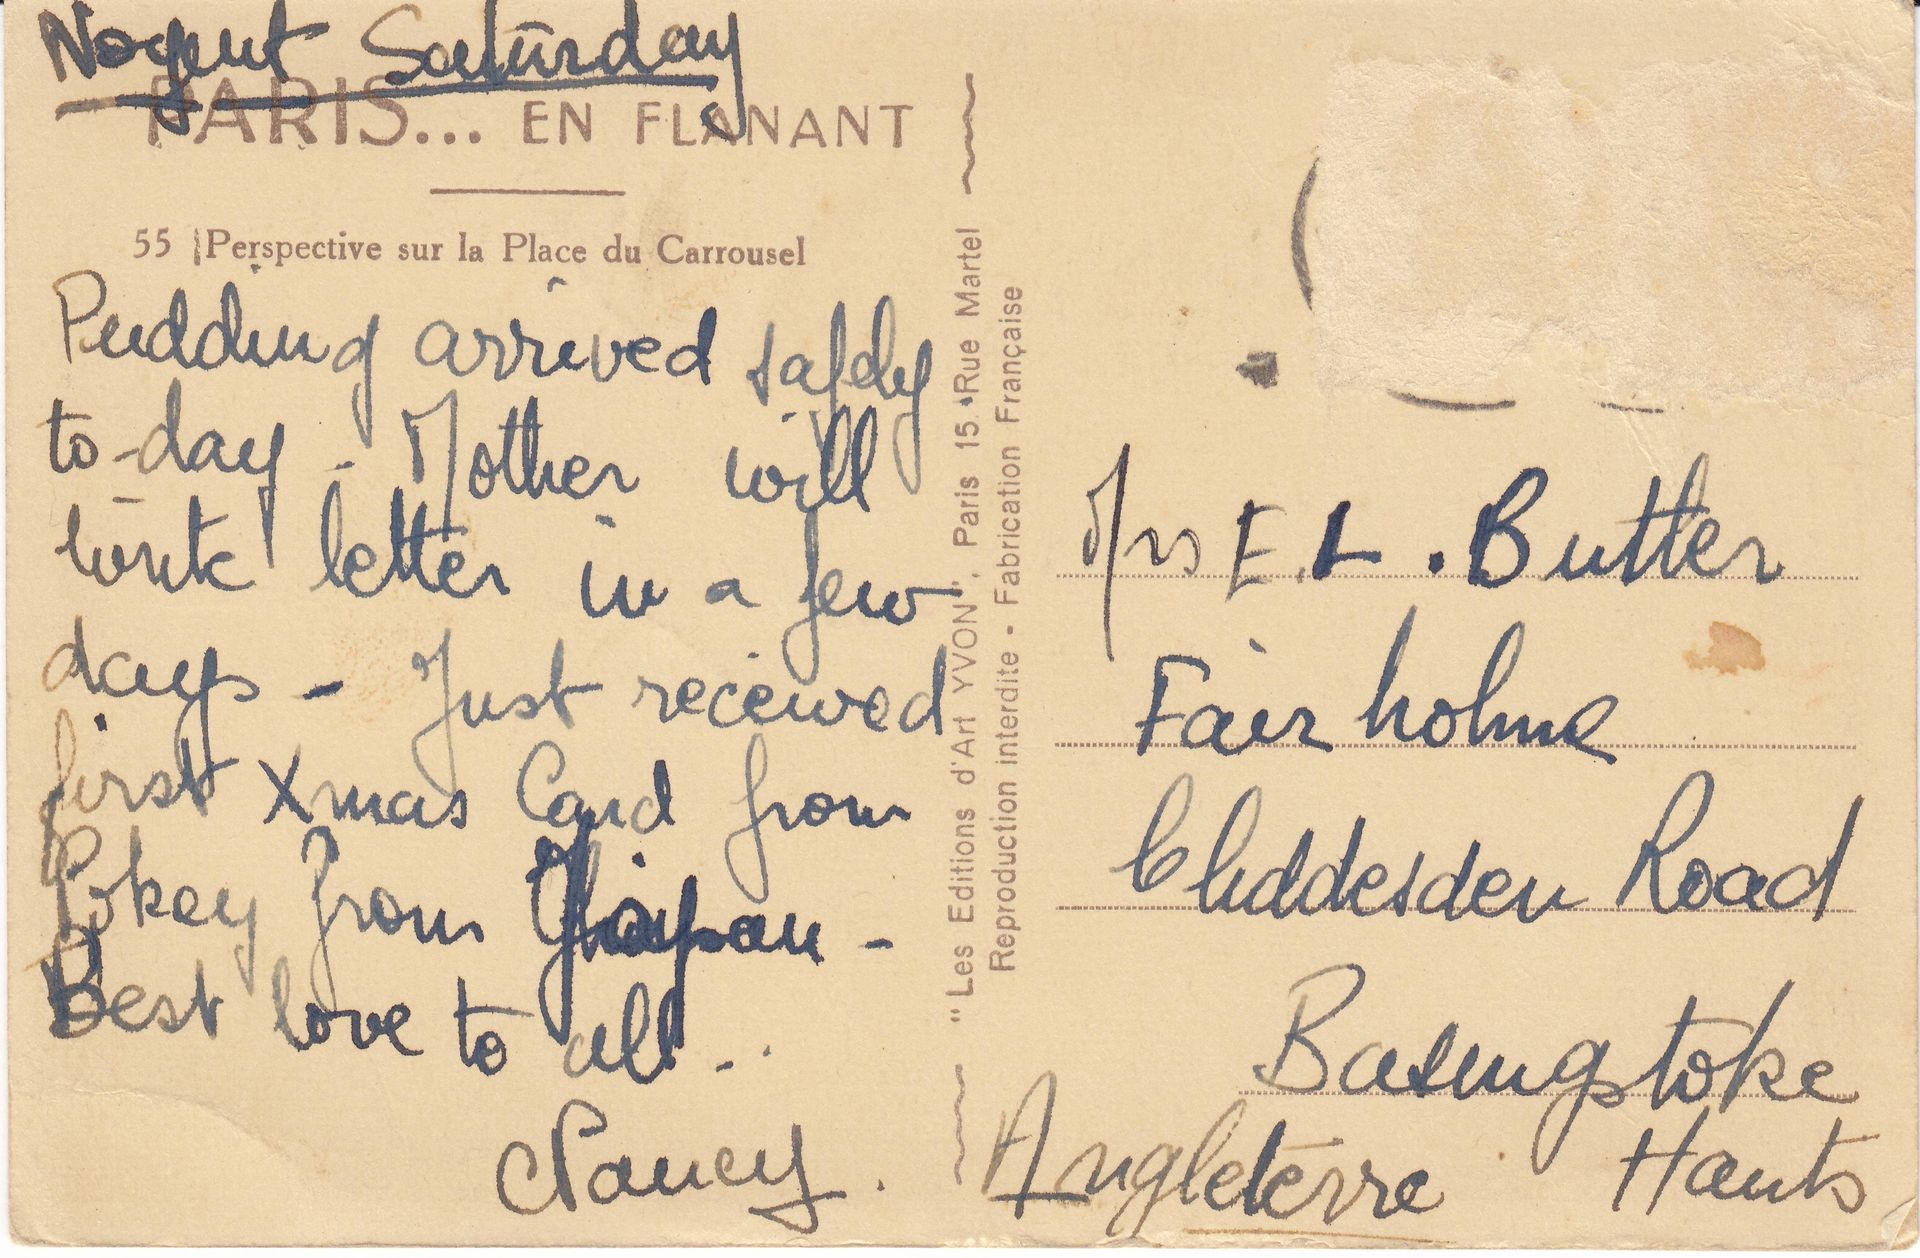 Nogent Saturday
PARIS... EN FLANANT
55 Perspective sur la Place du Carrousel
Pudding arrived safely
to-day - Mother will
write letter in a few
days - Just received
first Xmas Card from
Pokey from -
Best love to all..
Nancy.
"Les Editions d'Art YVON", Paris 15, Rue Martel
Reproduction interdite - Fabrication Française
Mrs E.L. Butler
Fairholme
Cliddesden Road
Basingstoke
Angleterre Hants